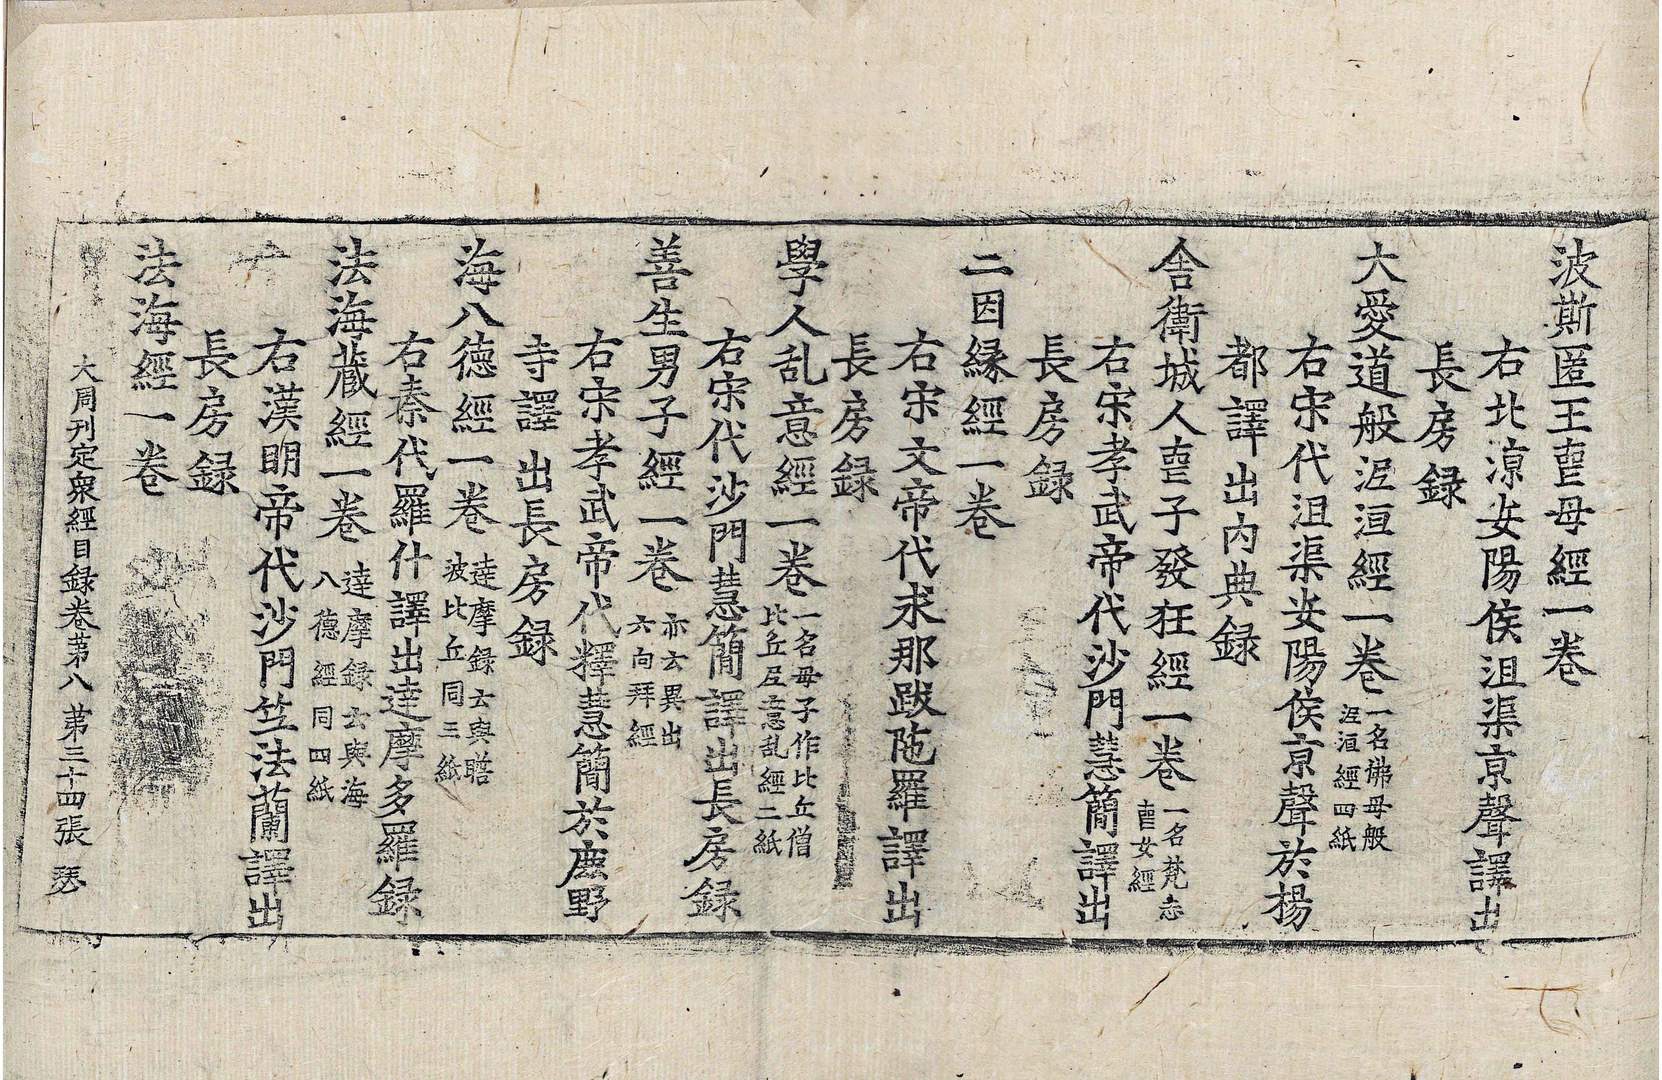 波斯匿王喪母經一巻
右北涼安陽侯沮渠京聲譯出
長房録
大愛道般泥洹經一巻 一名佛母般
泥洹經四紙
右宋代沮渠安陽侯京聲於楊
都譯出内典録
舎衛城人喪子發狂經一巻 一名梵志
喪女經
右宋孝武帝代沙門慧簡譯出
長房録
二因縁經一巻
右宋文帝代求那跋陁羅譯出
長房録
學人乱意經一巻 一名母子作比丘僧
比丘尼意乱經二紙
右宋代沙門慧簡譯出長房録
善生男子經一巻 亦云異出
六向拜經
右宋孝武帝代釋慧簡於鹿野
寺譯出長房録
海八德經一巻 達摩録云與瞻
波比丘同三紙
右秦代羅什譯出達摩多羅録
法海藏經一巻 達摩録云與海
八德經同四紙
右漢明帝代沙門竺法蘭譯出
長房録
法海經一巻
大周刊定衆經目録卷苐八 苐三十四張